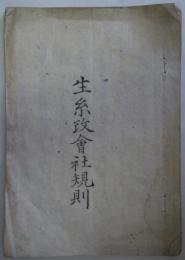 生糸改會社規則